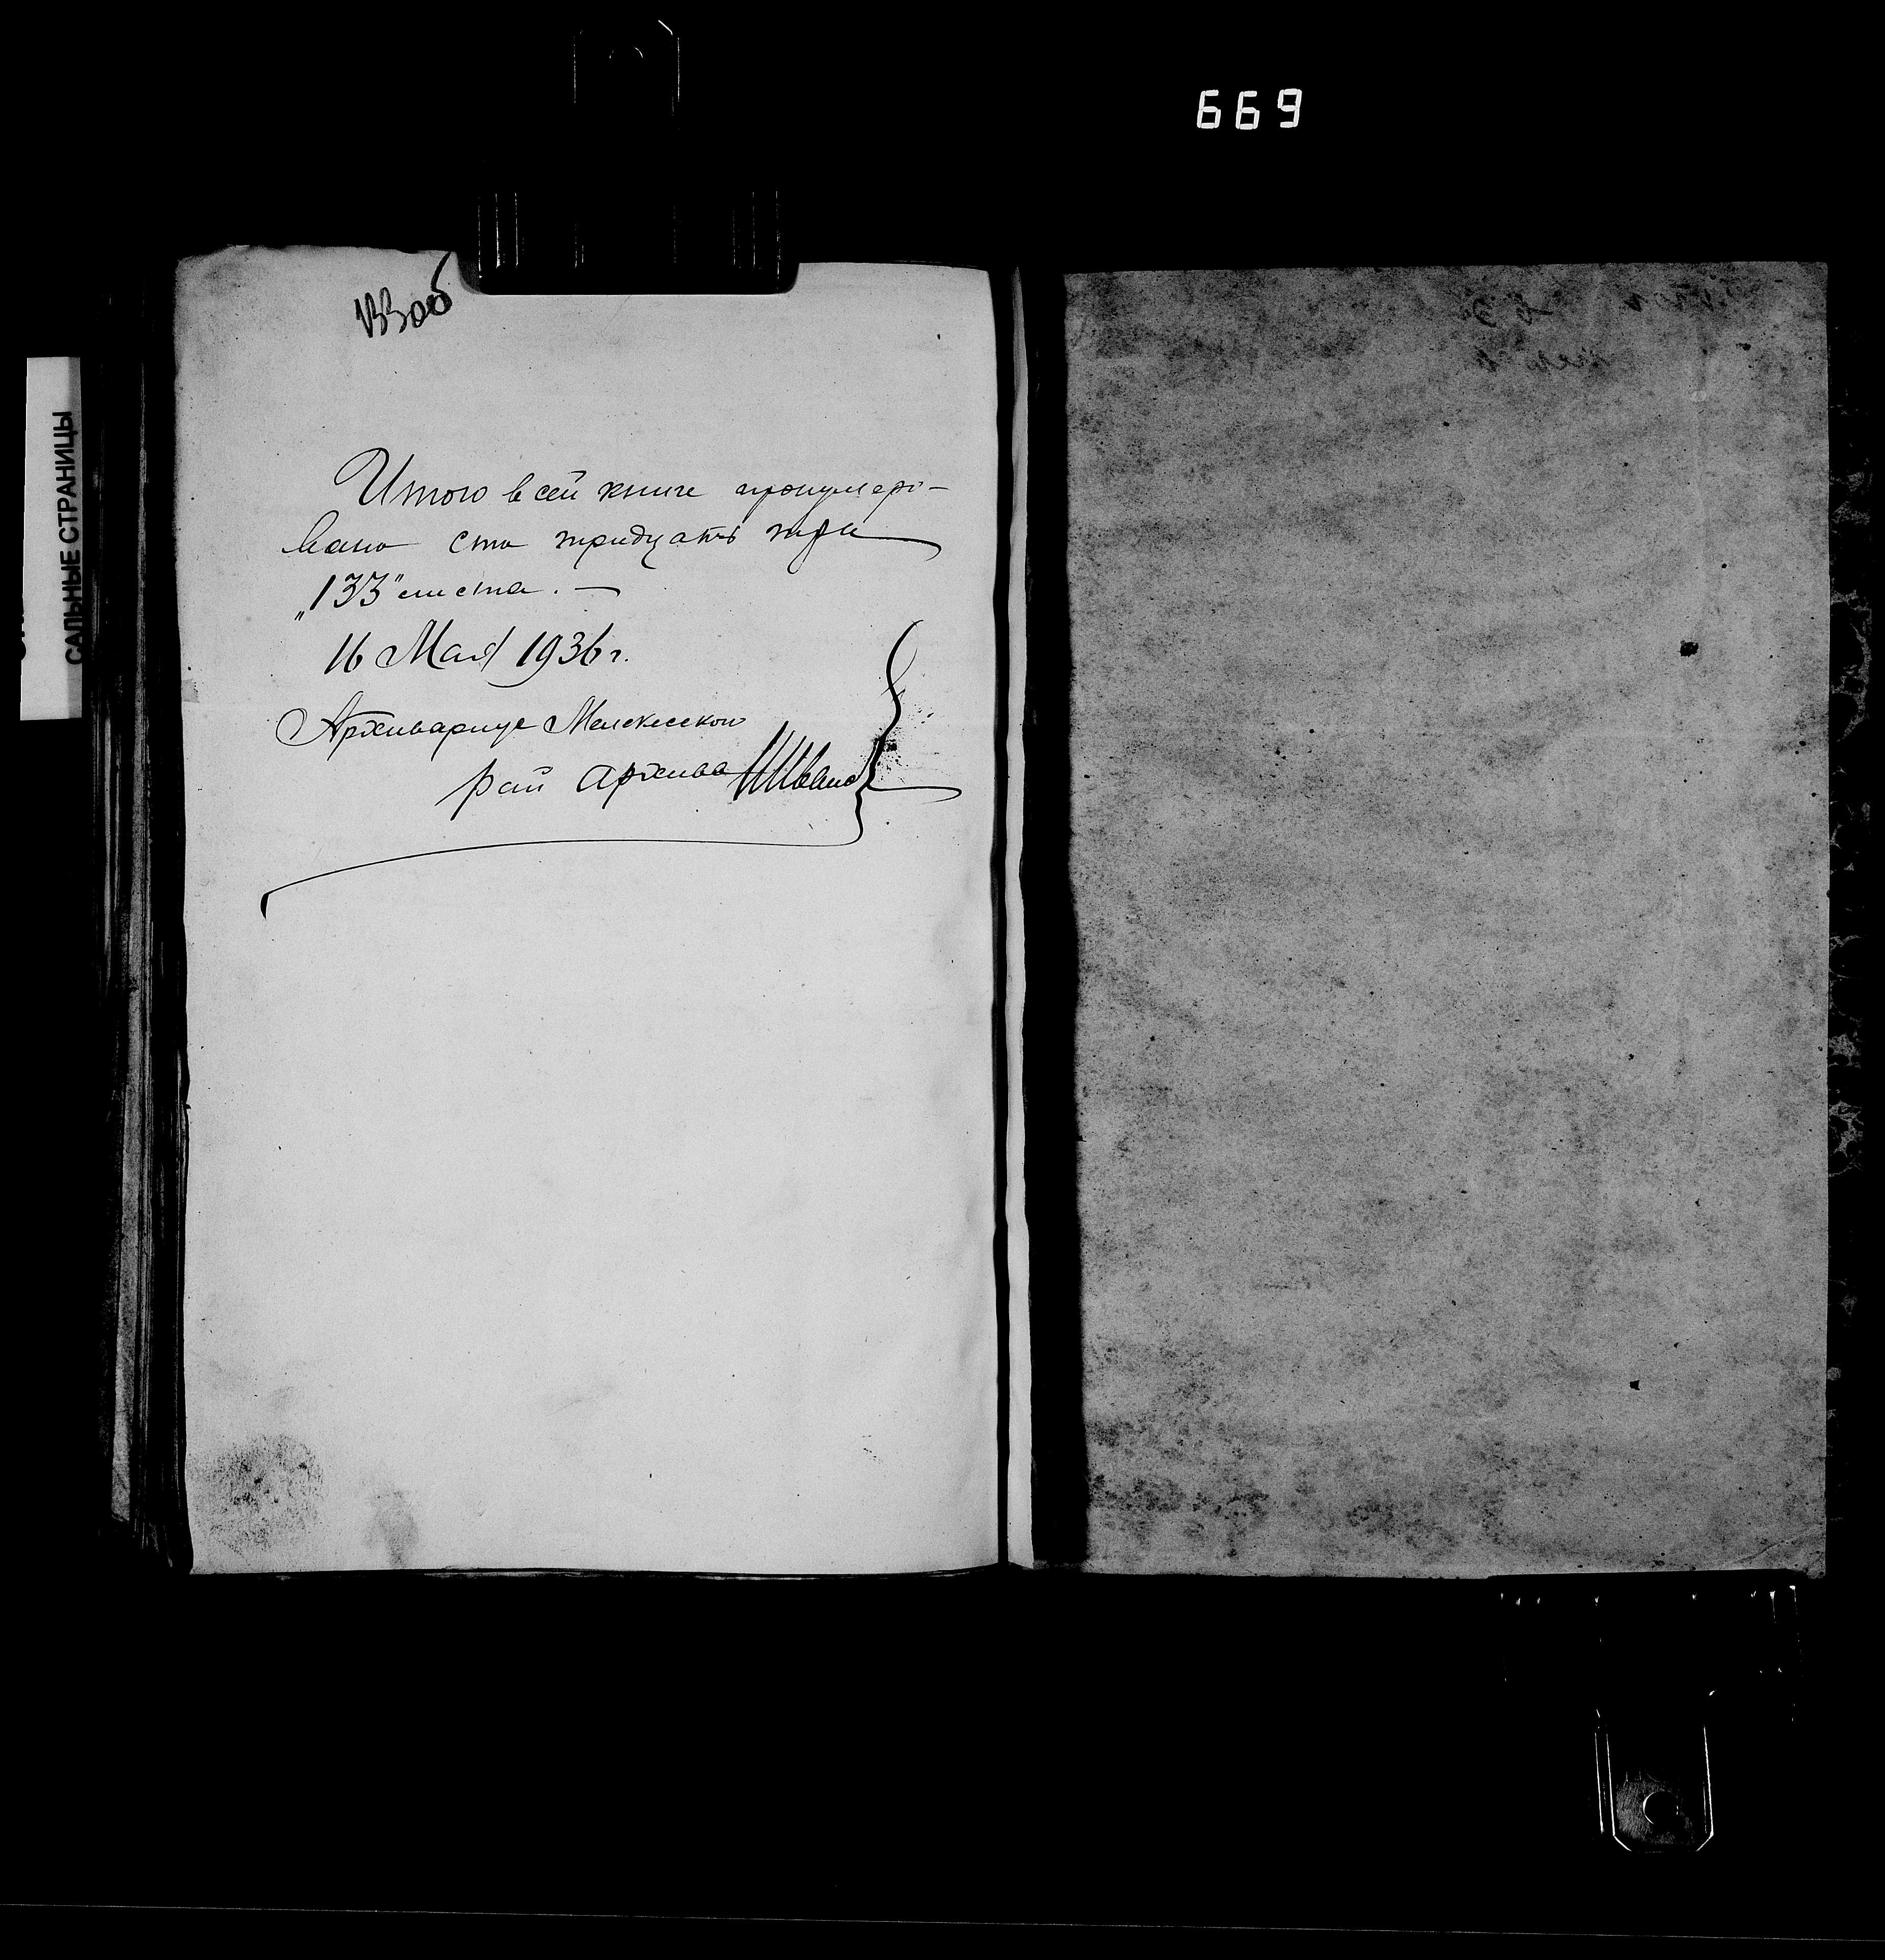 669
133об
САЛЬНЫЕ СТРАНИЦЫ
Итого в сей книге пронумеро-
вано сто тридцать три
„133" листа. —
16 Мая 1936 г.
Архивариус Мелекесского
рай архива